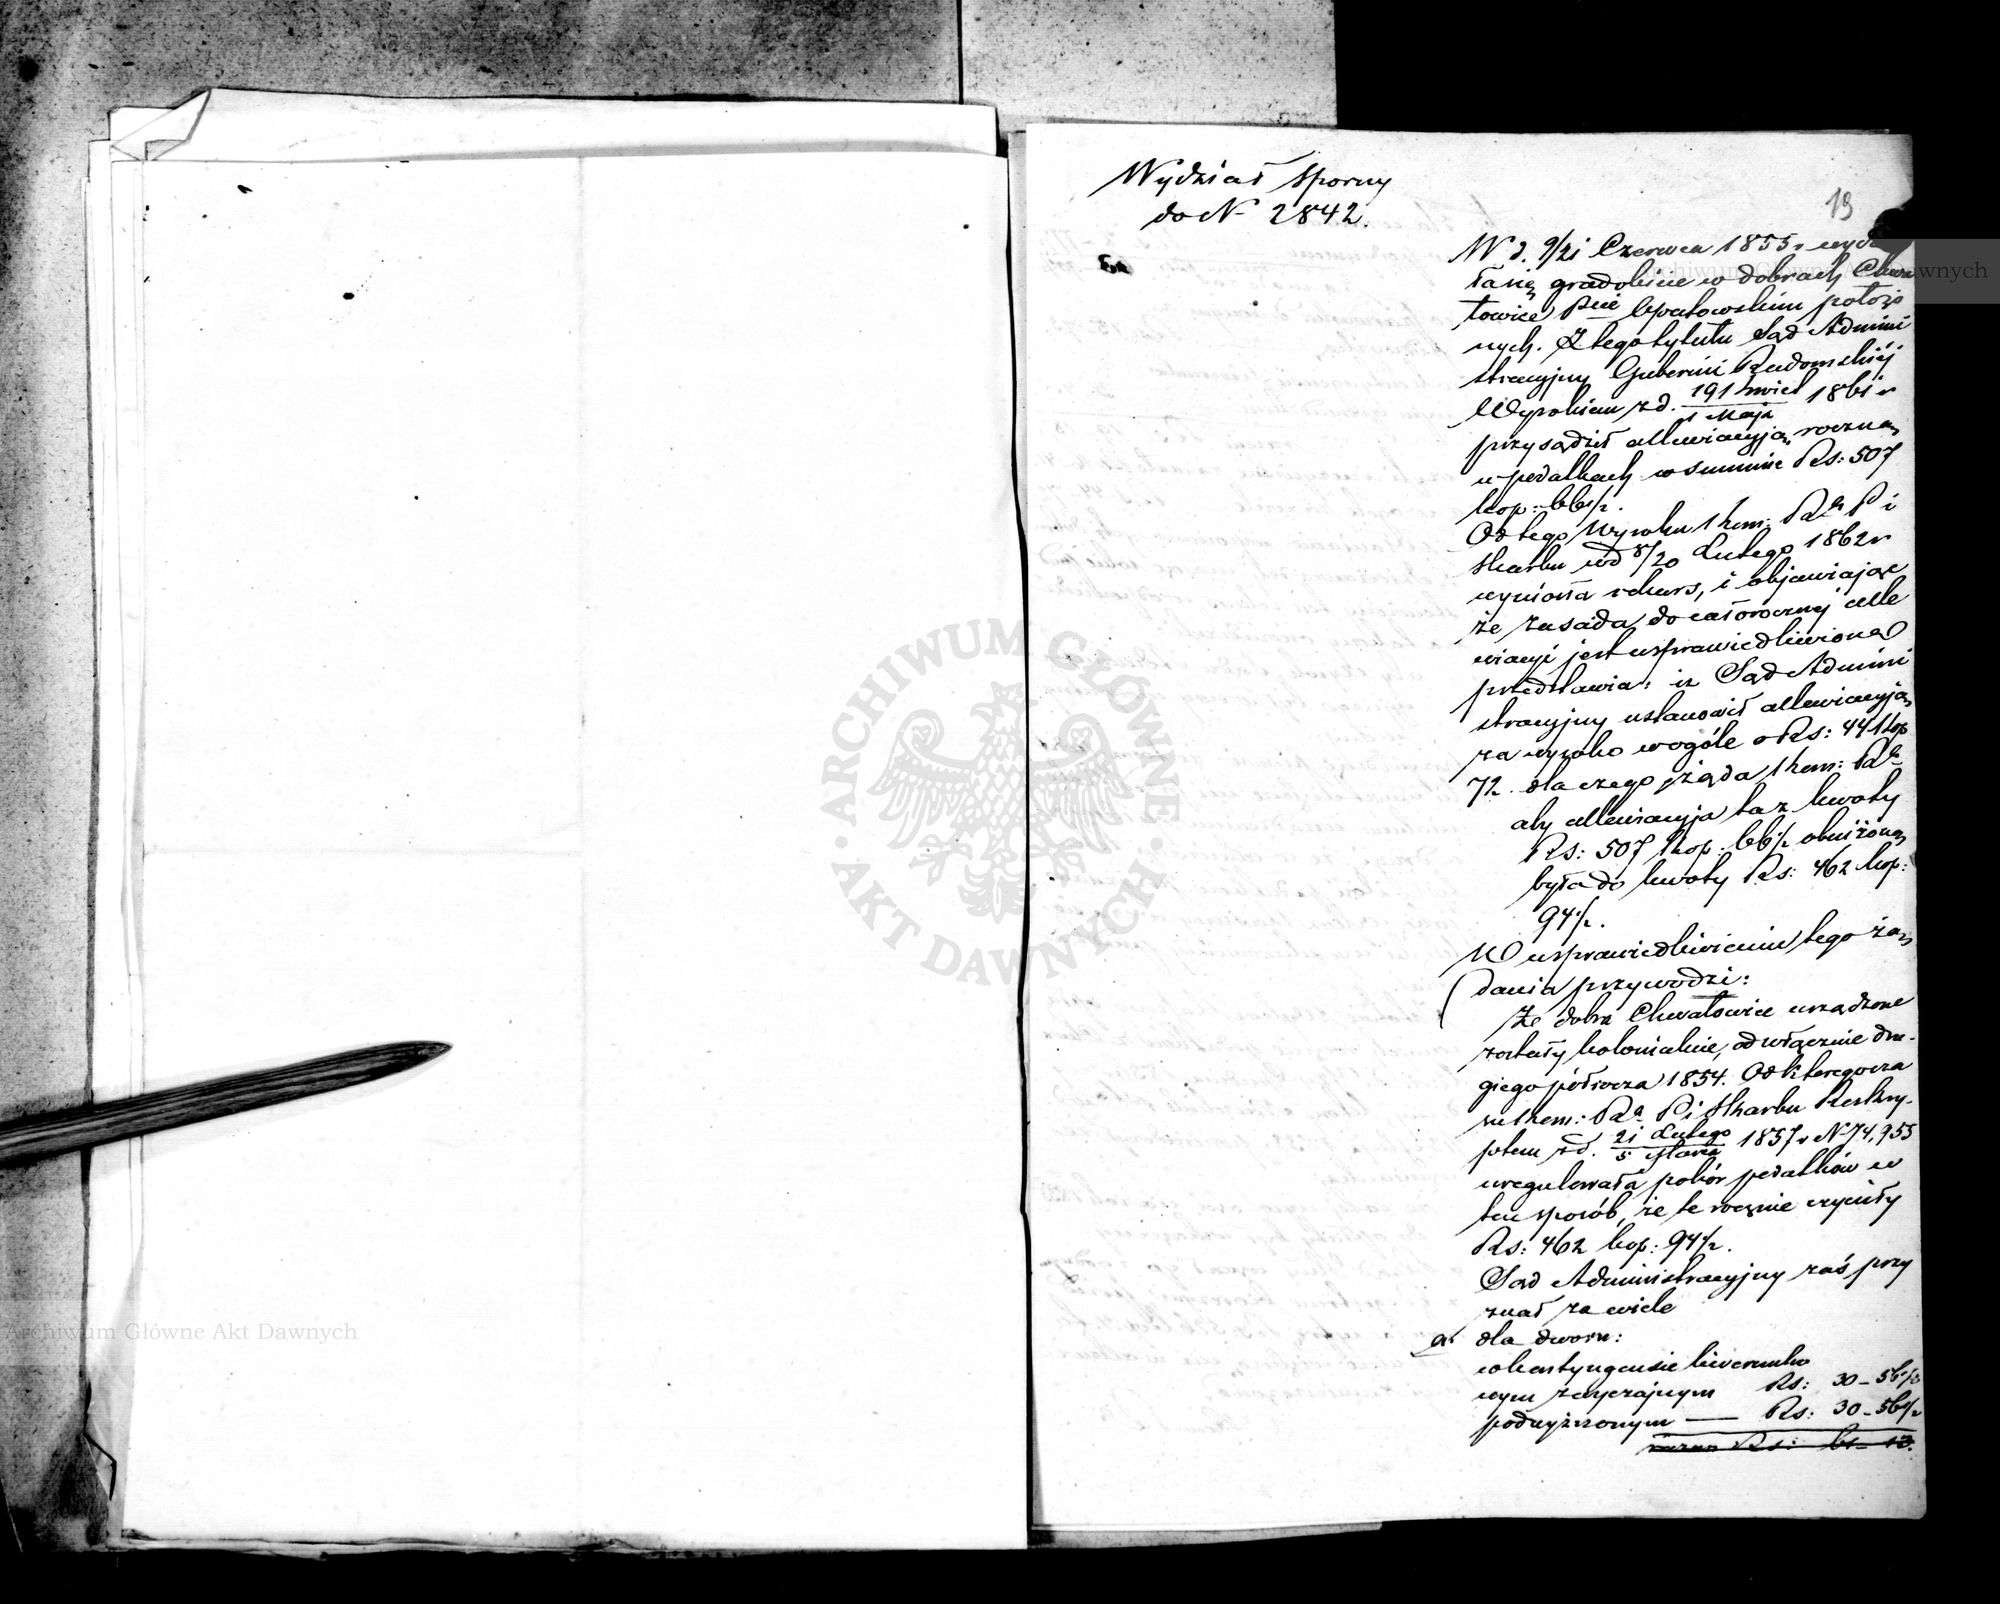 Wydział Sporny
do N 2842.
19
W d. 9/21 Czerwca 1855 r wyda
rła się gradobicie w dobrach Chwa
łowice Pcie Opatowskim położo
nych. Z tego tytułu Sąd Admini
stracyjny Gubernii Radomskiéj
Wyrokiem z d. 19 Kwiet / 1 Maja 1861 r
przysądził allewiacyją roczną
w podatkach w summie Rs: 507
kop: 66½.
Od tego Wyroku Kom: Rа P i
Skarbu w d 8/20 Lutego 1862 r
wyniosła rekurs, i objawiając
że zasada do całorocznej alle
wiacyi jest usprawiedliwioną
przedstawia: iż Sąd Admini
stracyjny ustanowił allewiacyją
za wysoko wogóle o Rs: 44 kop
72. dla czego żąda Kom: Rа
aby allewiacyja ta z kwoty
Rs: 507 kop: 66½ obniżoną
była do kwoty Rs: 462 kop:
94½.
W usprawiedliwieniu tego żą
dania przywodzi:
Że dobra Chwałowice urządzone
zostały kolonialnie, od włącznie dru-
giego półrocza 1854. Od którego cza
su Kom: Rа P i Skarbu Reskry-
ptem z d. 21 Lutego / 5 Marca 1857 r N 74,953
uregulowała pobór podatków w
ten sposób, że te rocznie czyniły
Rs: 462 kop: 94½.
Sąd Administracyjny zaś przy
znał za wiele
a. dla dworu:
w kontyngensie liwerunko
wym zwyczajnym Rs: 30-56½
podwyższonym — Rs: 30-56½
razem Rs: 61-13.
Archiwum Główne Akt Dawnych
Archiwum Główne Akt Dawnych
ARCHIWUM GŁÓWNE AKT DAWNYCH